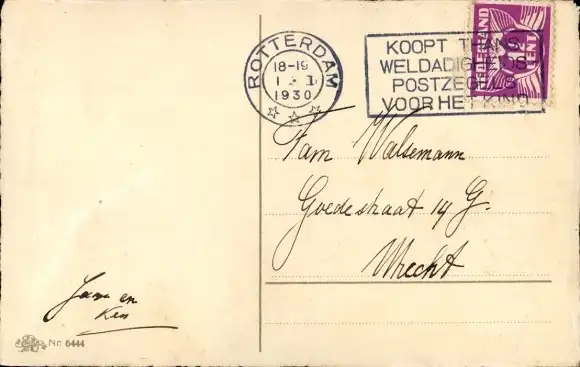 ROTTERDAM
18-19
1 1
1930
KOOPT THANS
WELDADIGHEIDS
POSTZEGELS
VOOR HET KIND
NEDERLAND
CENT
Fam Walsemann
Goedestraat 14 G.
Utrecht
en
Nr. 6444